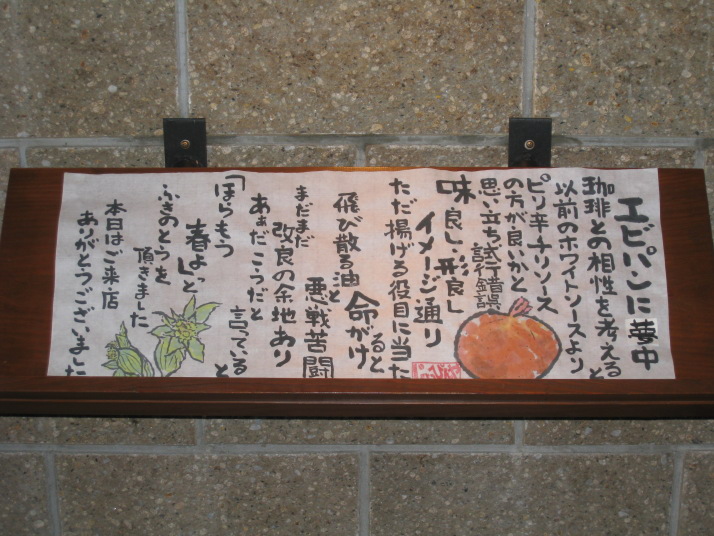 エビパンに夢中
珈琲との相性を考えると
以前のホワイトソースより
ピリ辛チリソース
の方が良いかと
思い立ち試行錯誤
味良し、形良し
イメージ通り
ただ揚げる役目に当た
ると
命がけ
飛び散る油と
悪戦苦闘
まだまだ
改良の余地あり
あぁだこうだと
言っていると
「ほらもう
春よっ」と
ふきのとうを
頂きました
本日はご来店
ありがとうございました